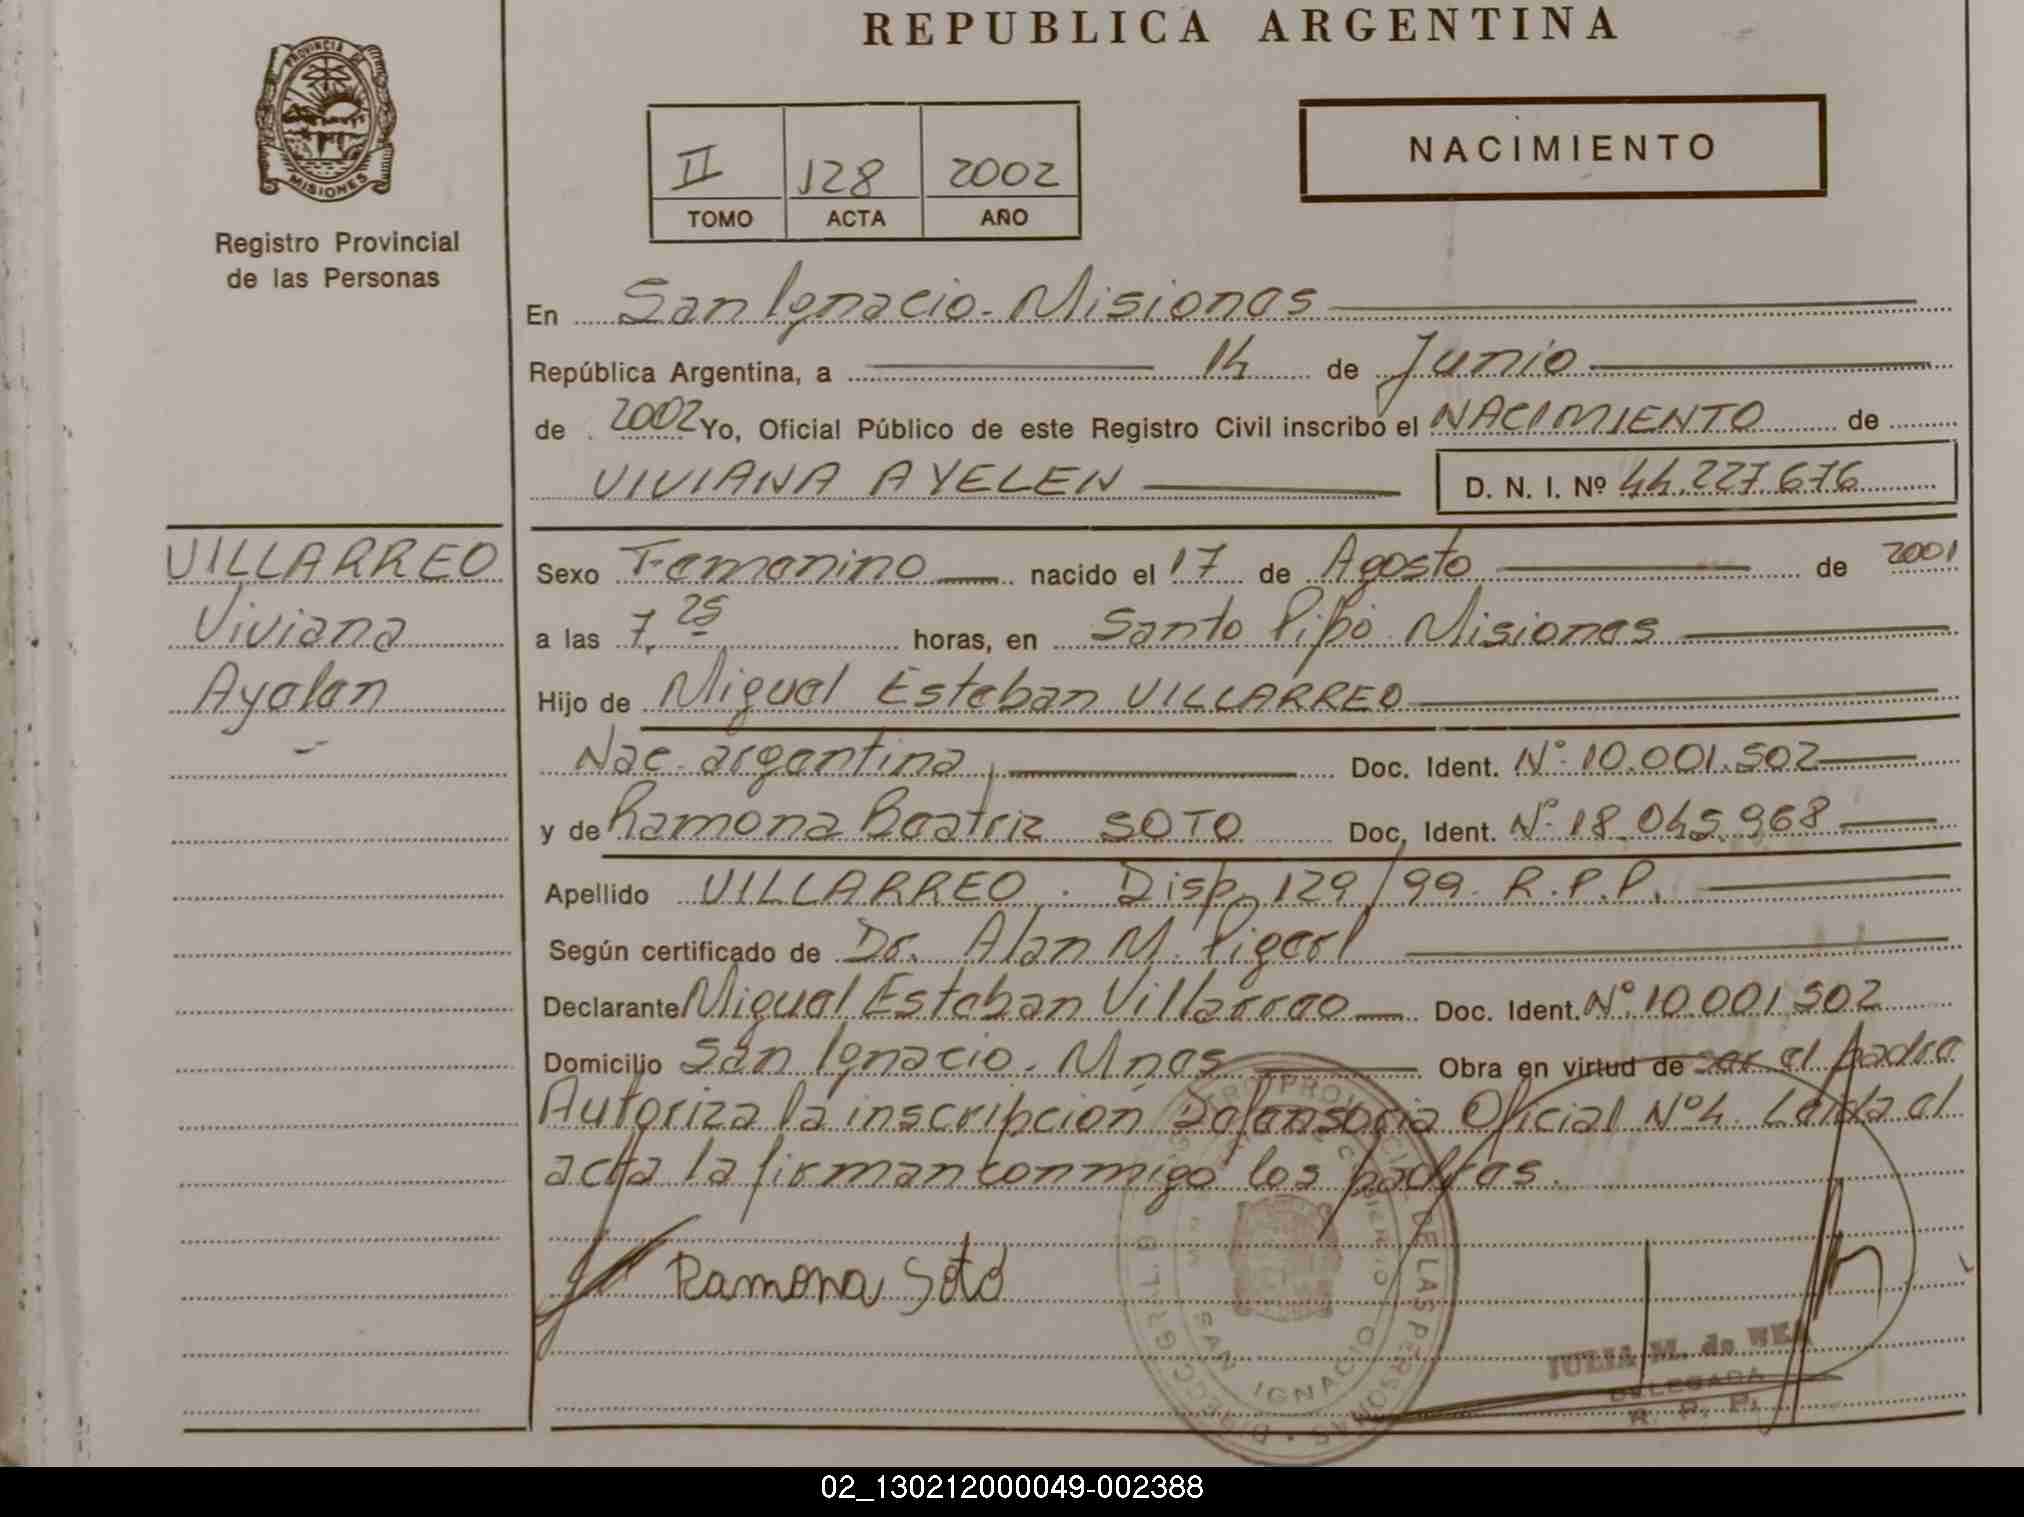 REPUBLICA ARGENTINA
PROVINCIA DE
MISIONES
Registro Provincial
de las Personas
II 128 2002
TOMO ACTA AÑO
NACIMIENTO
En San Ignacio - Misiones
República Argentina, a 14 de Junio
de 2002 Yo, Oficial Público de este Registro Civil inscribo el NACIMIENTO de
VIVIANA AYELEN D. N. I. Nº 44.227.676
VILLARREO
Viviana
Ayelen
Sexo Femenino nacido el 17 de Agosto de 2001
a las 7,25 horas, en Santo Pipó Misiones
Hijo de Miguel Esteban VILLARREO
Nac. argentina Doc. Ident. Nº 10.001.502
y de Ramona Beatriz SOTO Doc. Ident. Nº 18.045.968
Apellido VILLARREO. Disp. 129/99. R.P.P.
Según certificado de Dr. Alan M.
Declarante Miguel Esteban Villarreo Doc. Ident. Nº 10.001.502
Domicilio San Ignacio. Mnes Obra en virtud de ser el padre
Autoriza la inscripción Defensoria Oficial Nº 4. Leida el
acta la firman conmigo los padres.
Ramona Soto
SAN IGNACIO
DE LAS PERSONAS
JULIA M. de
DELEGADA
R. P. P.
02_130212000049-002388